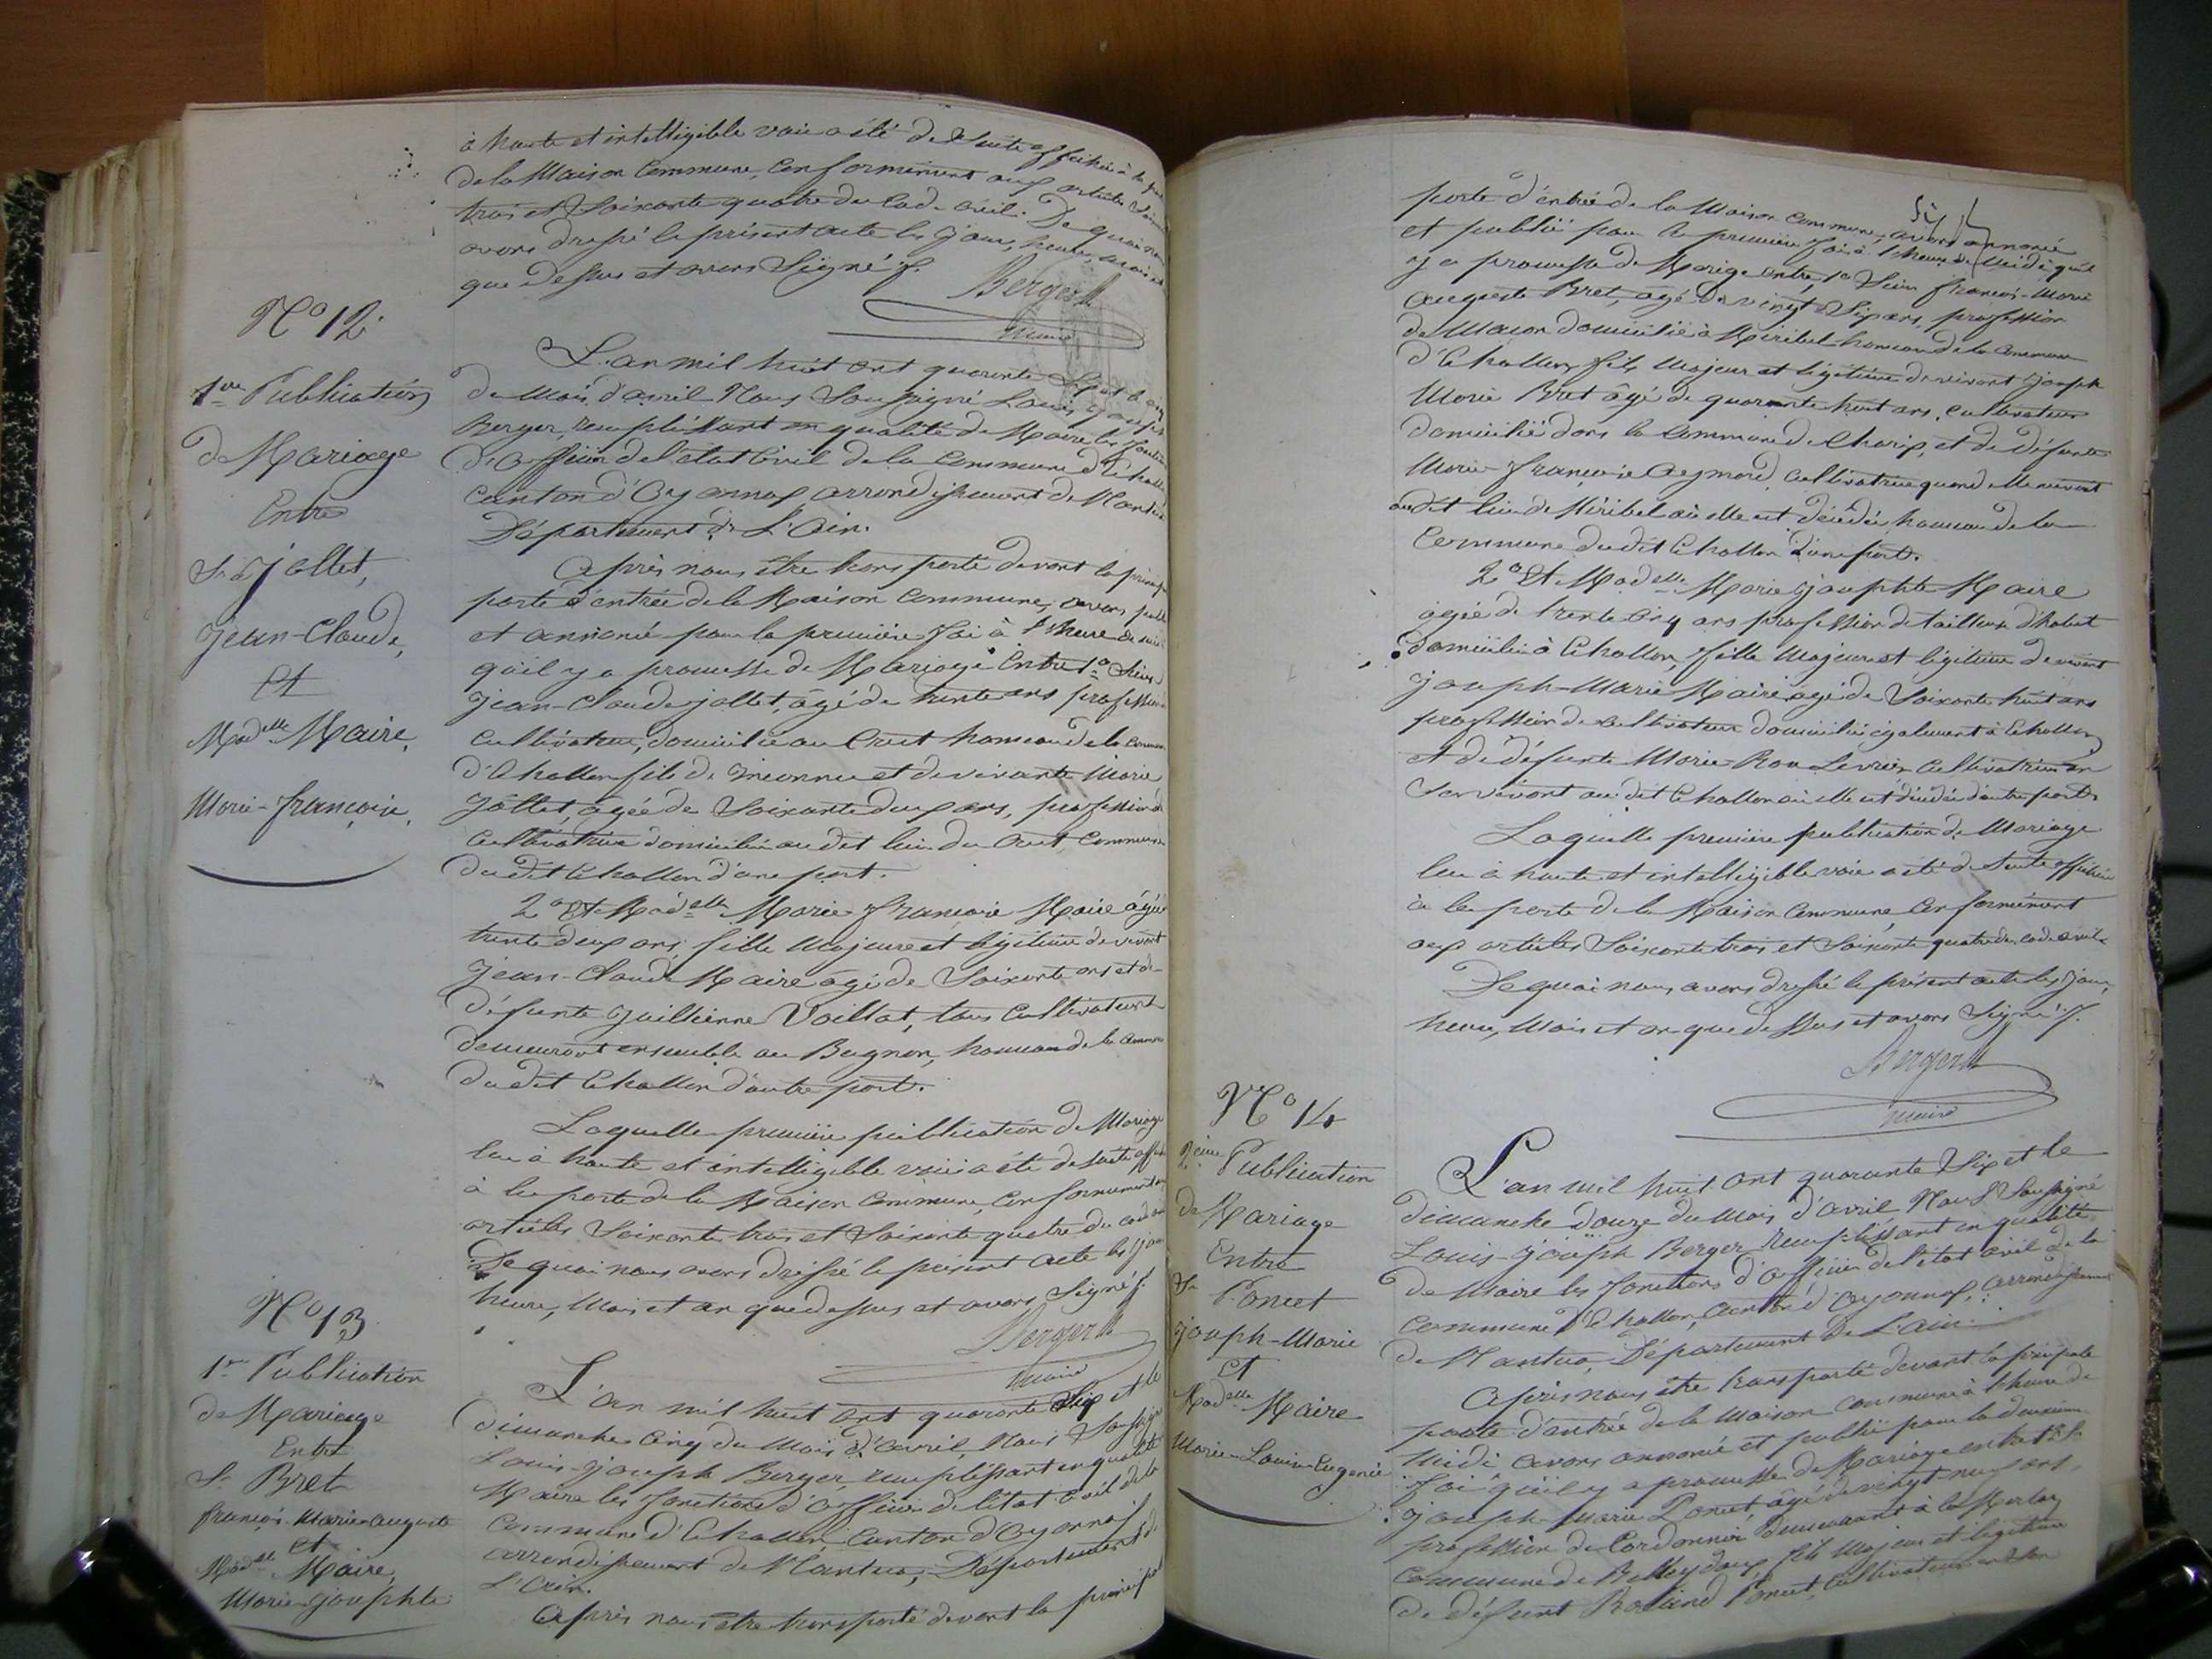 à haute et intelligible voie a été de suite affichée à la
de la Maison Commune, Conformément aux articles
trois et Soixante quatre du Code Civil. De quoi nous
avons dressé le présent acte les jour, heure, mois
que dessus et avons Signé /.
Berger
Maire
N° 12.
1ère Publication
de Mariage
Entre
Sr Jollet,
Jean-Claude,
Et
Madelle Maire,
Marie-françoise,
L'an mil huit cent quarante
du Mois d'avril Nous Soussigné Louis Joseph
Berger, remplissant en qualité de Maire les fonctions
D'officier de l'état Civil de la Commune d'Echallon
Canton d'Oyonnax arrondissement de Nantua
Département de L'Ain.
Après nous être transporté devant la
porte d'entrée de la Maison Commune, avons
et annoncé pour la première foi à l'heure de midi
qu'il y a promesse de Mariage Entre 1° Sieur
Jean-Claude Jollet, âgé de trente ans profession
Cultivateur, domicilié au Cret hameau de la Commune
d'Echallon fils de inconnu et de vivante Marie
Jollet, âgée de Soixante deux ans, profession de
Cultivatrice domiciliée au dit lieu du Cret Commune
du dit Echallon d'une part.
2° Et Madelle Marie françoise Maire âgée
trente deux ans, fille Majeure et légitime de vivant
Jean-Claude Maire âgé de Soixante ans et de
défunte Juillienne Vaillat, tous Cultivateurs
demeurant ensemble au Bugnon, hameau de la Commune
du dit Echallon d'autre part.
Laquelle première publication de Mariage
lue à haute et intelligible voie a été de suite
à la porte de la Maison Commune, Conformément aux
articles Soixante trois et Soixante quatre du Code
De quoi nous avons dressé le présent acte les jour
heure, Mois et an que dessus et avons Signé /.
Berger
Maire
N° 13
1re Publication
de Mariage
Entre
Sr Bret
françois-Marie-Auguste
Et
Madelle Maire,
Marie-Josephte
L'an mil huit cent quarante Six et le
Dimanche Cinq du Mois d'avril, Nous Soussigné
Louis-Joseph Berger, remplissant en qualité
Maire les fonctions d'officier de l'état Civil de la
Commune d'Echallon, Canton d'Oyonnax
arrondissement de Nantua, Département de
L'Ain.
Après nous être transporté devant la principale
porte d'entrée de la Maison Commune, avons annoncé
et publié pour la première foi à l'heure de Midi qu'il
y a promesse de Mariage entre, 1° Sieur françois-Marie
Auguste Bret, âgé de vingt Six ans, profession
de Maçon domicilié à Miribel hameau de la Commune
d'Echallon, fils Majeur et légitime de vivant Joseph
Marie Bret âgé de quarante huit ans, Cultivateur
domicilié dans la Commune de Charix, et de défunte
Marie-françoise Aymard, Cultivatrice quand elle vivait
audit lieu de Miribel où elle est décédée hameau de la
Commune du dit Echallon d'une part.
2° Et Madelle Marie Josephte Maire
âgée de trente Cinq ans profession de tailleur d'habit
domiciliée à Echallon, fille Majeure et légitime de vivant
Joseph-Marie Maire âgé de Soixante huit ans
profession de Cultivateur domicilié également à Echallon
et de défunte Marie-Rose Levrier Cultivatrice en
Son vivant au dit Echallon où elle est décédée d'autre part.
Laquelle première publication de Mariage
lue à haute et intelligible voie a été de suite affichée
à la porte de la Maison Commune, Conformément
aux articles Soixante trois et Soixante quatre du Code Civil.
De quoi nous avons dressé le présent acte les jour,
heure, Mois et an que dessus et avons Signé /.
Berger
Maire
N° 14
2ème Publication
de Mariage
Entre
Sr Poncet
Joseph-Marie
Et
Madelle Maire
Marie-Louise-Eugénie
L'an mil huit cent quarante Six et le
dimanche Douze du Mois d'avril Nous Soussigné
Louis-Joseph Berger remplissant en qualité
de Maire les fonctions d'officier de l'état Civil de la
Commune d'Echallon, Canton d'Oyonnax, arrondissement
de Nantua, Département de L'Ain.
Après nous être transporté devant la principale
porte d'entrée de la Maison Commune à l'heure de
Midi avons annoncé et publié pour la deuxième
foi qu'il y a promesse de Mariage entre 1° Sr
Joseph-Marie Poncet, âgé de vingt-neuf ans,
profession de Cordonnier demeurant à
Commune de Belleydoux fils Majeur et légitime
de défunt Rolland Poncet, Cultivateur